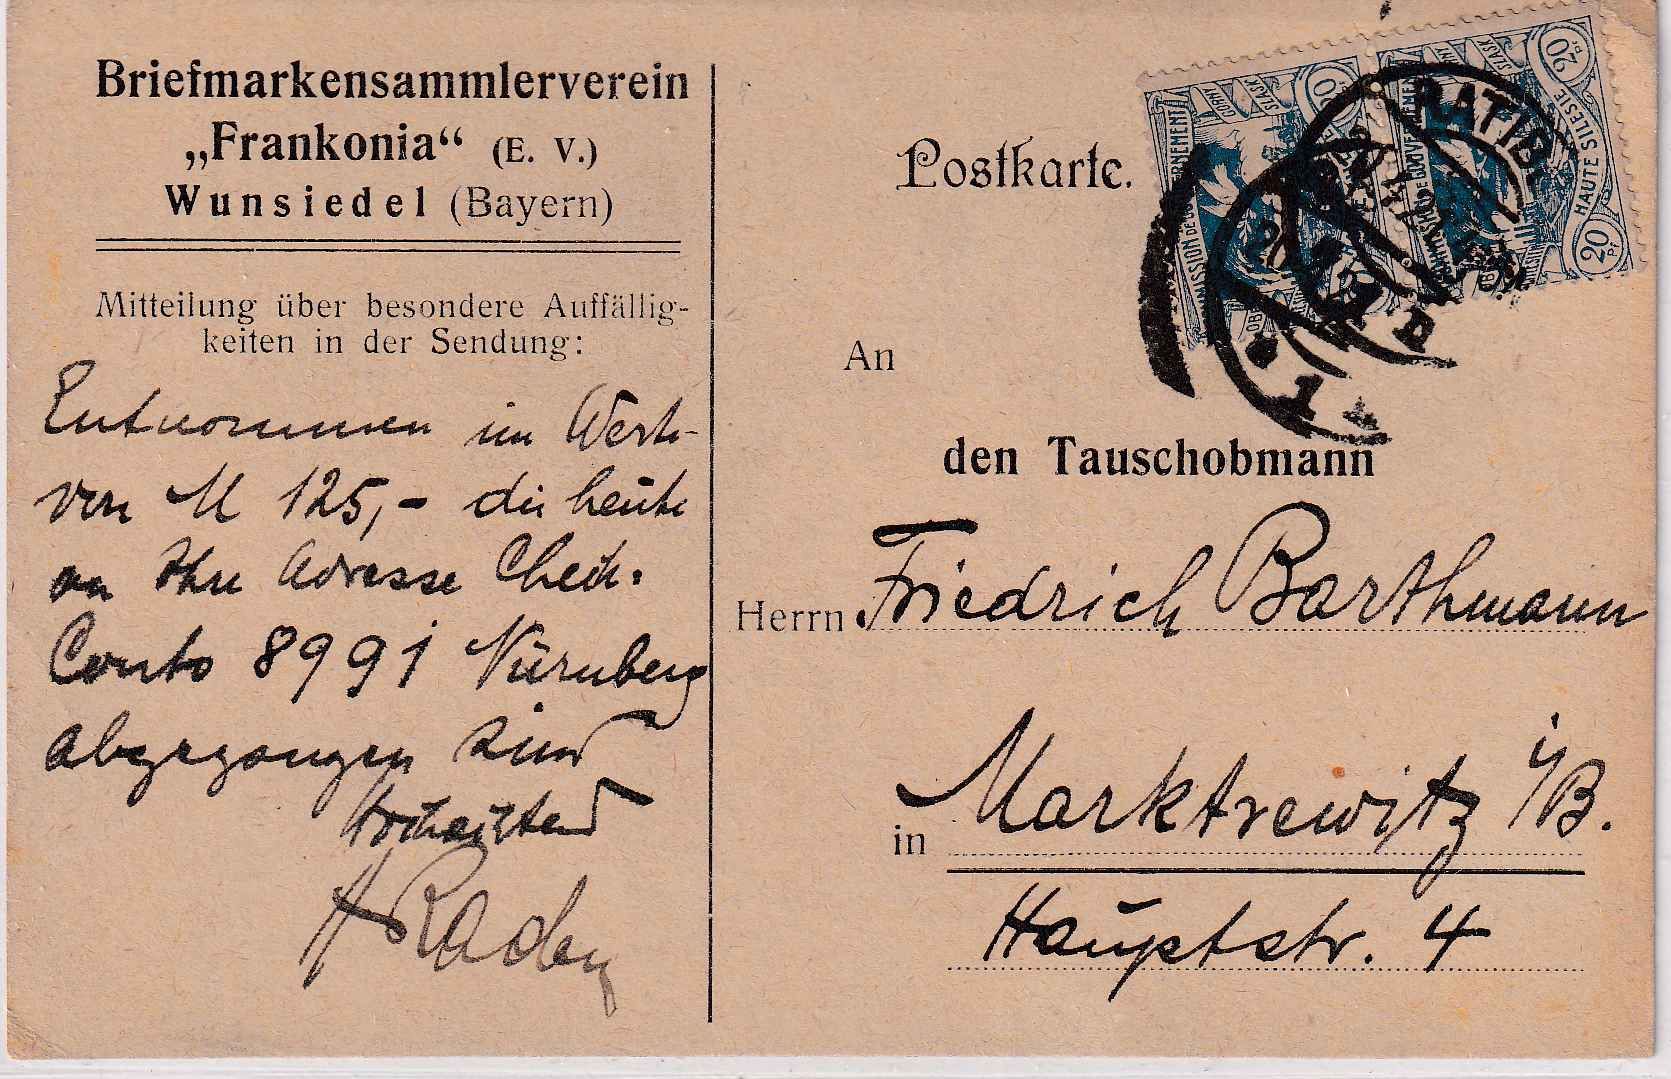 Briefmarkensammlerverein
„Frankonia“ (E. V.)
Wunsiedel (Bayern)
Mitteilung über besondere Auffällig-
keiten in der Sendung:
Entnommen im Werte
von M 125,- die heute
an Ihre Adresse Check-
Conto 8991 Nürnberg
abgegangen sind
Hochachtend
Postkarte.
GORNY SLASK
COMMISSION DE GOUVERNEMENT
20
HAUTE SILESIE
20 Pf
RATIB
1
An
den Tauschobmann
Herrn Friedrich Barthmann
in Marktrewitz i/B.
Hauptstr. 4